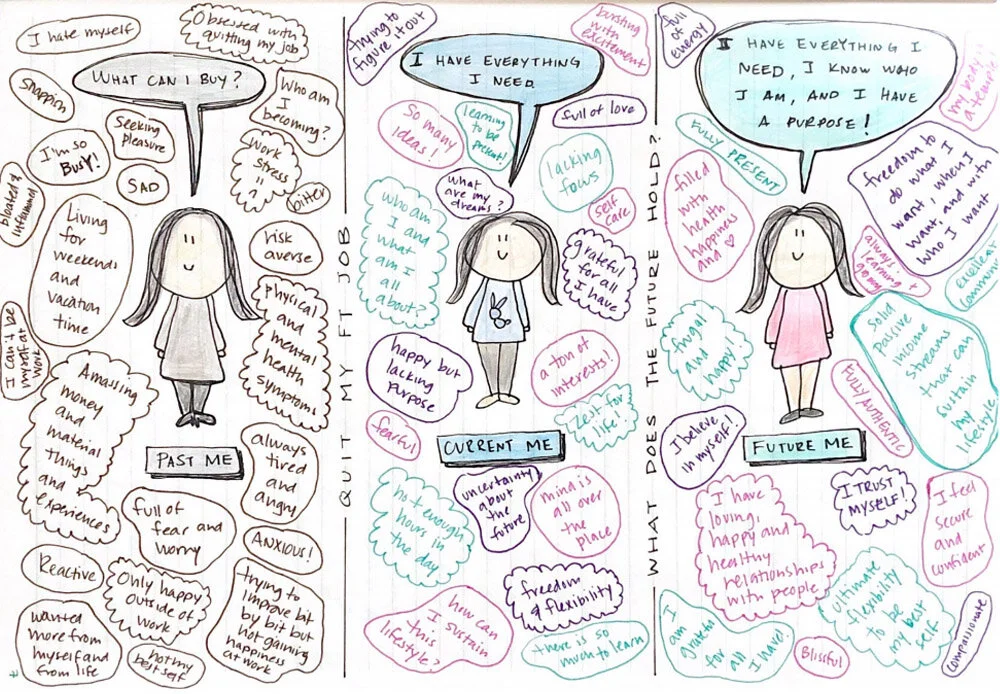 I hate myself
Obsessed with
quitting my job
WHAT CAN I BUY?
shoppin
Who am
I
becoming?
Seeking
pleasure
I'm so
BUSY!
SAD
Work
stress
bitter
bloated &
inflammed
Living
for
weekends
and
vacation
time
risk
averse
Physical
and
mental
health
symptoms
I can't be
myself at
work
Amassing
money
and
material
things
and
experiences
PAST ME
always
tired
and
angry
full of
fear and
worry
ANXIOUS!
Reactive
Only happy
outside of
work
trying to
improve bit
by bit but
not gaining
happiness
at work
wanted
more from
myself and
from life
not my
best self
QUIT MY FT JOB
Trying to
figure it out
bursting
with
excitement
I HAVE EVERYTHING
I NEED
So many
ideas!
learning
to be
present!
full of love
lacking
focus
what
are my
dreams?
self
care
who am
I and
what
am I
all
about?
grateful
for all
I have
happy but
lacking
purpose
a ton of
interests!
zest for
life!
fearful
CURRENT ME
uncertainty
about
the
future
mind is
all over
the
place
not enough
hours in
the day
freedom
& flexibility
how can
I sustain
this
lifestyle?
there is so
much to learn
WHAT DOES THE FUTURE HOLD?
full
of
energy
I HAVE EVERYTHING I
NEED, I KNOW WHO
I AM, AND I HAVE
A PURPOSE!
my body a
temple
FULLY PRESENT
freedom to
do what I
want, when I
want, and with
who I want
filled
with
health
happiness
and ♡
always
learning +
Excellent
solid
passive
income
streams
that can
sustain
my
lifestyle
frugal
and
happy!
FULLY AUTHENTIC
I believe
in myself!
FUTURE ME
I TRUST
MYSELF!
I have
loving,
happy and
healthy
relationships
with people
I feel
secure
and
confident
ultimate
flexibility
to be
my best
self
I
am
grateful
for all
I have!
Blissful
compassionate